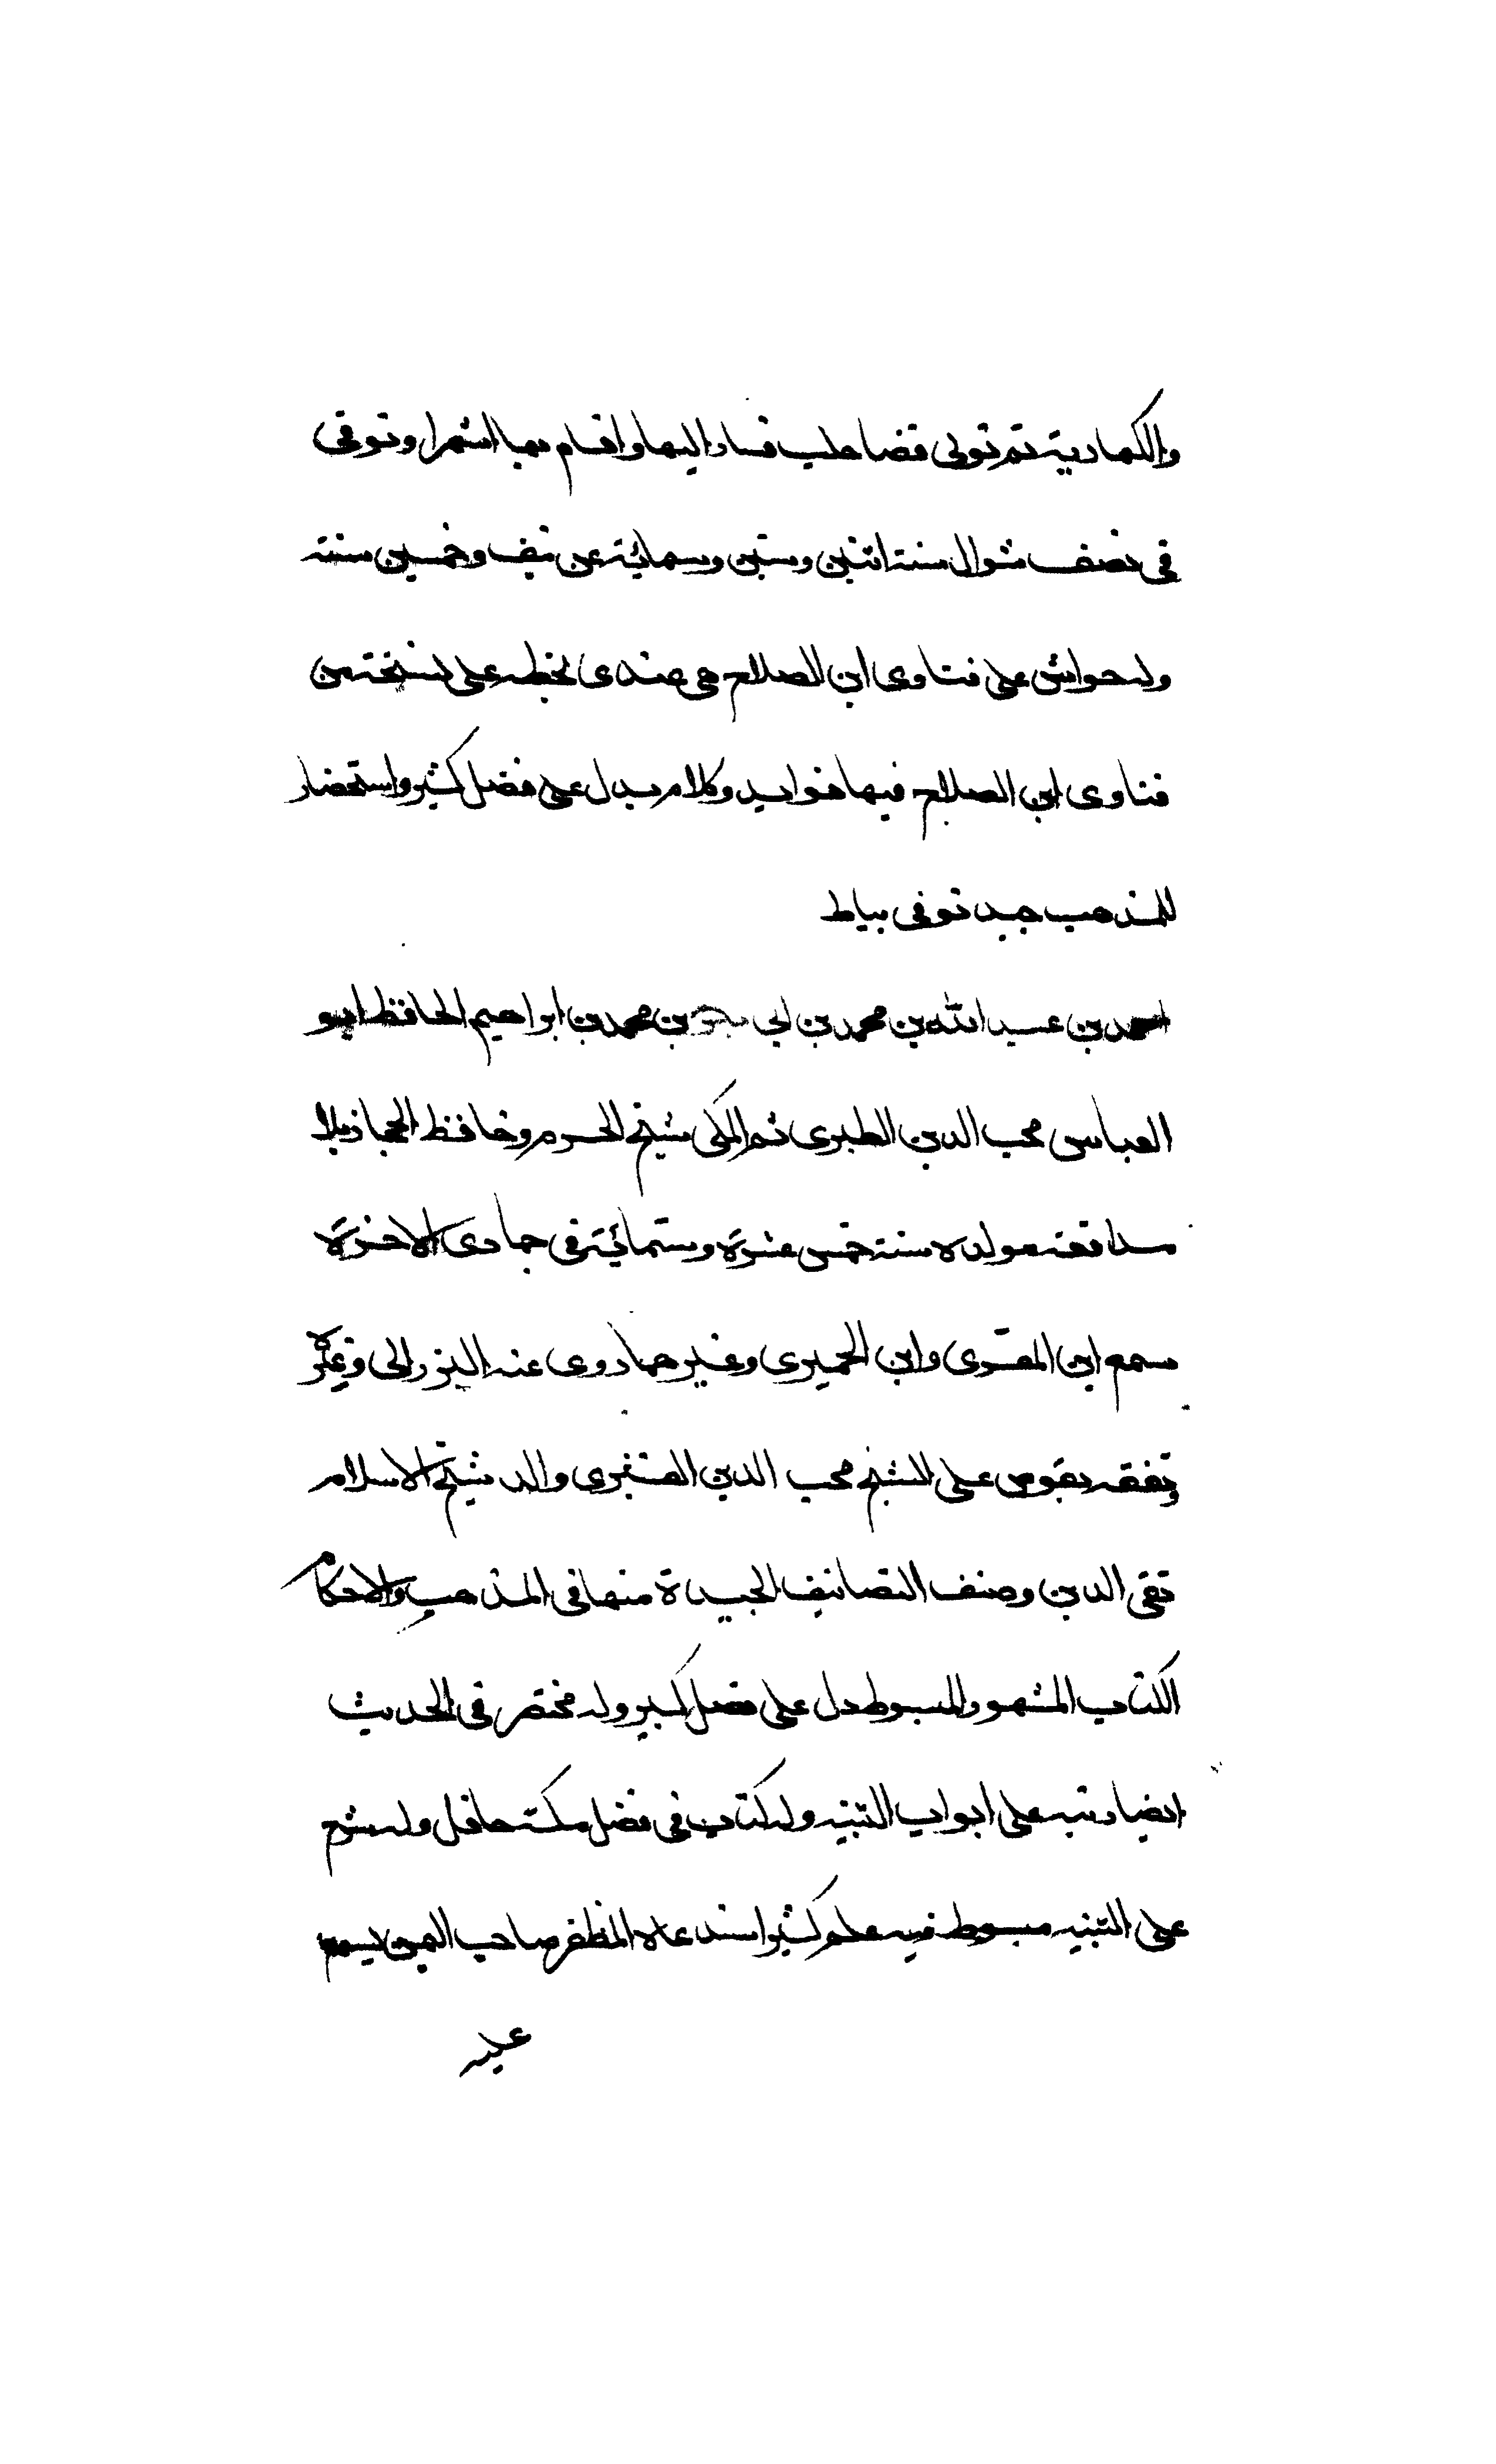 والكهارية ثم تولى قضا حلب فسار اليها واقام بها اشهرا وتوفى
فى نصف شوال سنة اثنين وستين وسمائة عن نيف وخمسين سنة
وله حواش على فتاوى ابن الصلاح هى عندى بخطه على نسخة من
فتاوى ابن الصلاح فيها فوايد وكلام يدل على فضل كثير واستحضار
للمذهب جيد توفى
احمد بن عبد الله بن محمد بن ابى بكر بن محمد بن ابراهيم الحافظ ابو
العباس محب الدين الطبرى ثم المكى شيخ الحرم وحافظ الحجاز بلا
مدافعة مولده سنة خمس عشرة وستمائة فى جمادى الاخرة
سمع ابن المقرى وابن الحميرى وغيرهما روى عنه البرزالى وغيره
وتفقه بقوص على الشيخ محب الدين القشيرى والد شيخ الاسلام
تقى الدين وصنف التصانيف الجيدة منها فى المذهب والاحكام
الكتاب المشهور المبسوط دل على فضل كبير وله مختصر فى الحديث
ايضا رتبه على ابواب التنبيه وله كتاب فى فضل مكة حافل وله شرح
على التنبيه مبسوط فيه علم كثير استدعاه المظفر صاحب اليمن ليسمع
عليه